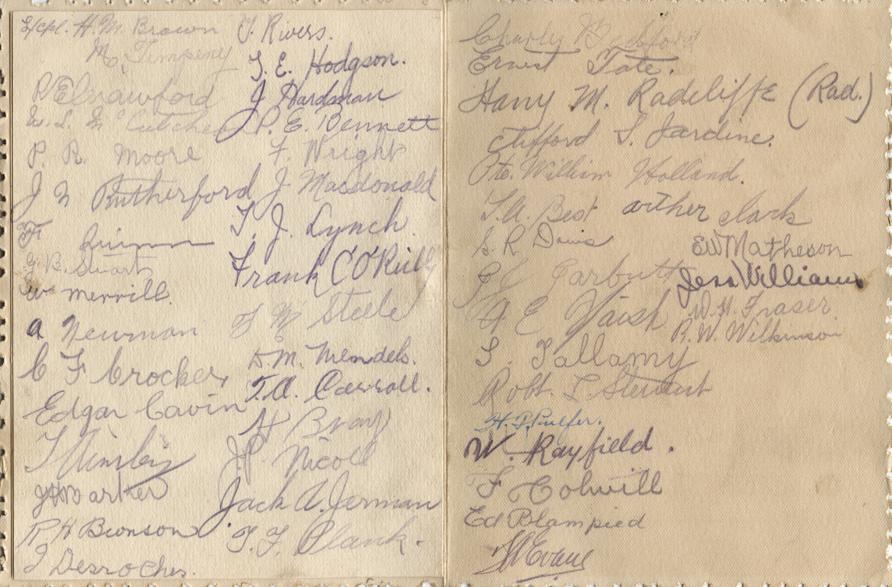 L/cpl. H. M. Brown
M. Timpeny
R E Crawford
W. L. McCutcheo
P. R. Moore
J N Rutherford
F Quinn
G. B. Stuart
Wm Merrill.
A Newman
C F Crocker
Edgar Cavin
T
R H Bronson
J Desroches.
V. Rivers.
T. E. Hodgson.
J Hardman
P. E. Bennett
F. Wright
J Macdonald
T. J. Lynch.
Frank C O'Reilly
Steele
D. M. Mendels.
T. A. Carroll.
H Bray
J. P. Nicoll
Jack A. Jerman
T. F. Plank.
Charly
Ernest Tate.
Harry M. Radcliffe (Rad.)
Clifford S. Jardine.
Pte. William Holland.
T. A. Best arther clark
S. R. Davis EW Matheson
Garbutt Jess Williams
A E Vaish W. H. Fraser.
R. W. Wilkinson
S. Tallamy
Robt. L Stewart
H. Pulfer.
W. Rayfield.
F Colwill
Ed Blampied
Evans